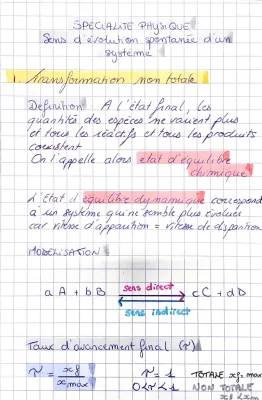 SPECIALITÉ PHYSIQUE
Sens d'évolution spontanée d'un
système
1. Transformation non totale
Definition A l'état final, les
quantités des espèces ne varient plus
et tous les réactifs et tous les produits
coexistent
On l'appelle alors etat d'équilibre
chimique
L'Etat d'équilibre dynamique correspond
à un système qui ne semble plus évoluer
car vitesse d'apparition = vitesse de disparition
MODELISATION
a A + b B sens direct cC + dD
sens indirect
Taux d'avancement final (τ)
τ = xf / xmax τ = 1 TOTALE xf = max
0<τ<1 NON TOTALE
xf < xm